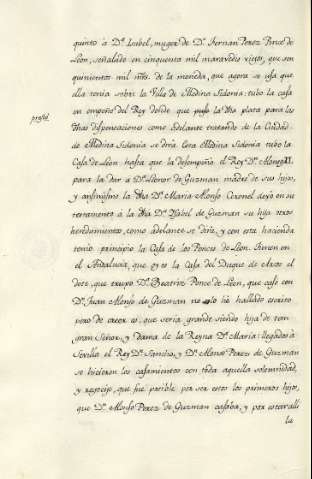 quinto à Dª Isabel, muger de Dⁿ Fernan Perez Ponce de
Leon, señalado en cinquenta mil maravedis viejos, que son
quinientos mil mrs. de la moneda, que agora se usa que
ella tenia sobre la Villa de Medina Sidonia: tubo la casa
en empeño del Rey desde que puso la dha plata para las
dhas dispensaciones como adelante tratando de la Ciudad
de Medina Sidonia se dria. Esta Medina Sidonia tubo la
Casa de Leon hasta que la desempeño el Rey Dⁿ Alonso XI.
para la dar à Dª Leonor de Guzman madre de sus hijos,
y ansimismo la dha Dª Maria Alonso Coronel dejo en su
testamento a la dha Dª Isabel de Guzman su hija otros
heredamientos, como adelante se dirà, y con esta hacienda
tomò principio la Casa de los Ponces de Leon. Sirven en
el Andalucia, que oy es la Casa del Duque de Arcos el
dote, que truxo Dª Beatriz Ponce de Leon, que casò con
Dⁿ Juan Alonso de Guzman no lo hè hallado escrito
pero de creer es, que seria grande siendo hija de tan
gran Señor, y Dama de la Reyna Dª Maria: llegados à
Sevilla el Rey Dⁿ Sancho, y Dⁿ Alonso Perez de Guzman
se hicieron los casamientos con toda aquella solemnidad,
y regocijo, que fue posible por ser estos los primeros hijos,
que Dⁿ Alonso Perez de Guzman casaba, y por estar alli
la